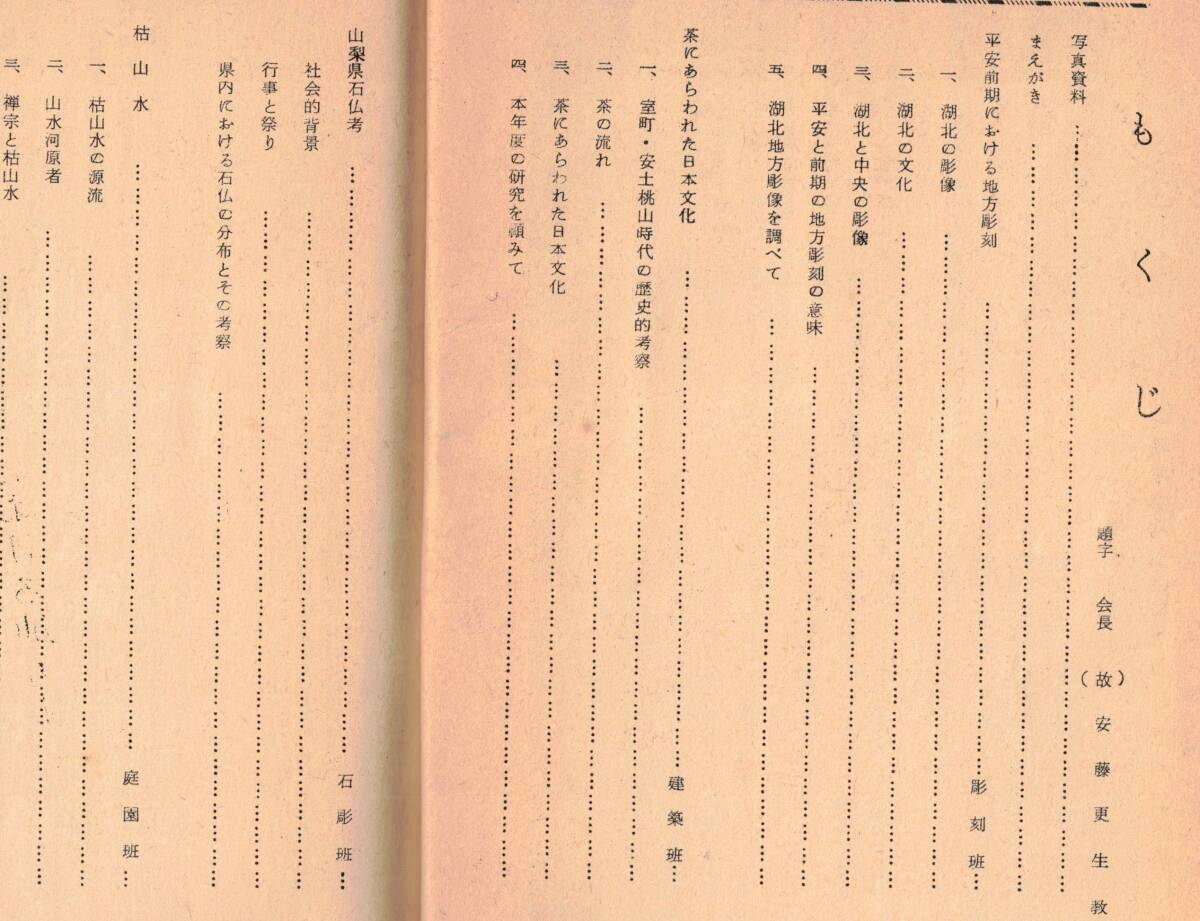 もくじ
題字 会長（故）安藤更生教
写真資料
まえがき
平安前期における地方彫刻 彫刻班
一、湖北の彫像
二、湖北の文化
三、湖北と中央の彫像
四、平安と前期の地方彫刻の意味
五、湖北地方彫像を調べて
茶にあらわれた日本文化 建築班
一、室町・安土桃山時代の歴史的考察
二、茶の流れ
三、茶にあらわれた日本文化
四、本年度の研究を顧みて
山梨県石仏考 石彫班
社会的背景
行事と祭り
県内における石仏の分布とその考察
枯山水 庭園班
一、枯山水の源流
二、山水河原者
三、禅宗と枯山水